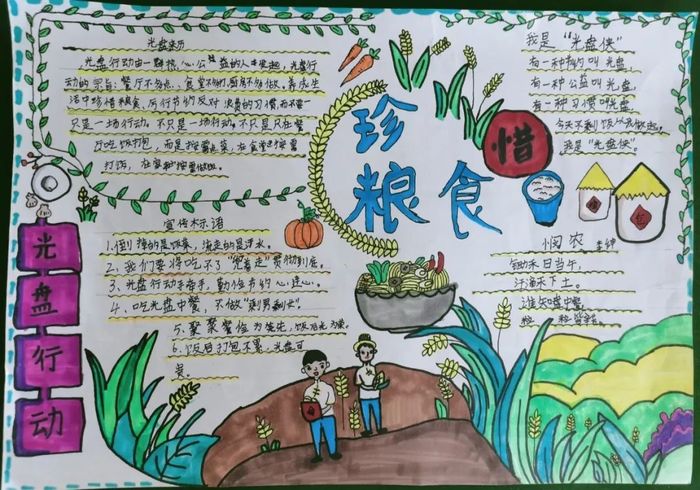 光盘来历
光盘行动由一群热心公益的人士发起，光盘行
动的宗旨：餐厅不多点、食堂不多打、厨房不多做，养成生
活中珍惜粮食、厉行节约反对浪费的习惯，而不要
只是一场行动。不只是一场行动，不只是只在餐
厅吃饭打包，而是按需点菜，在食堂按需
打饭，在家按需做饭。
珍惜
粮食
我是“光盘侠”
有一种节约叫光盘，
有一种公益叫光盘，
有一种习惯叫光盘，
今天不剩饭从我做起，
我是“光盘侠”。
光盘行动
宣传标语
1、倒掉的是饭菜，流走的是汗水。
2、我们要将吃不了“兜着走”贯彻到底。
3、光盘行动手牵手，勤俭节约心连心。
4、吃光盘中餐，不做“剩男剩女”。
5、聚聚餐俭为先，饭后光为荣。
6、饭后打包不累，光盘可
悯农 李绅
锄禾日当午，
汗滴禾下土。
谁知盘中餐，
粒粒皆辛苦。